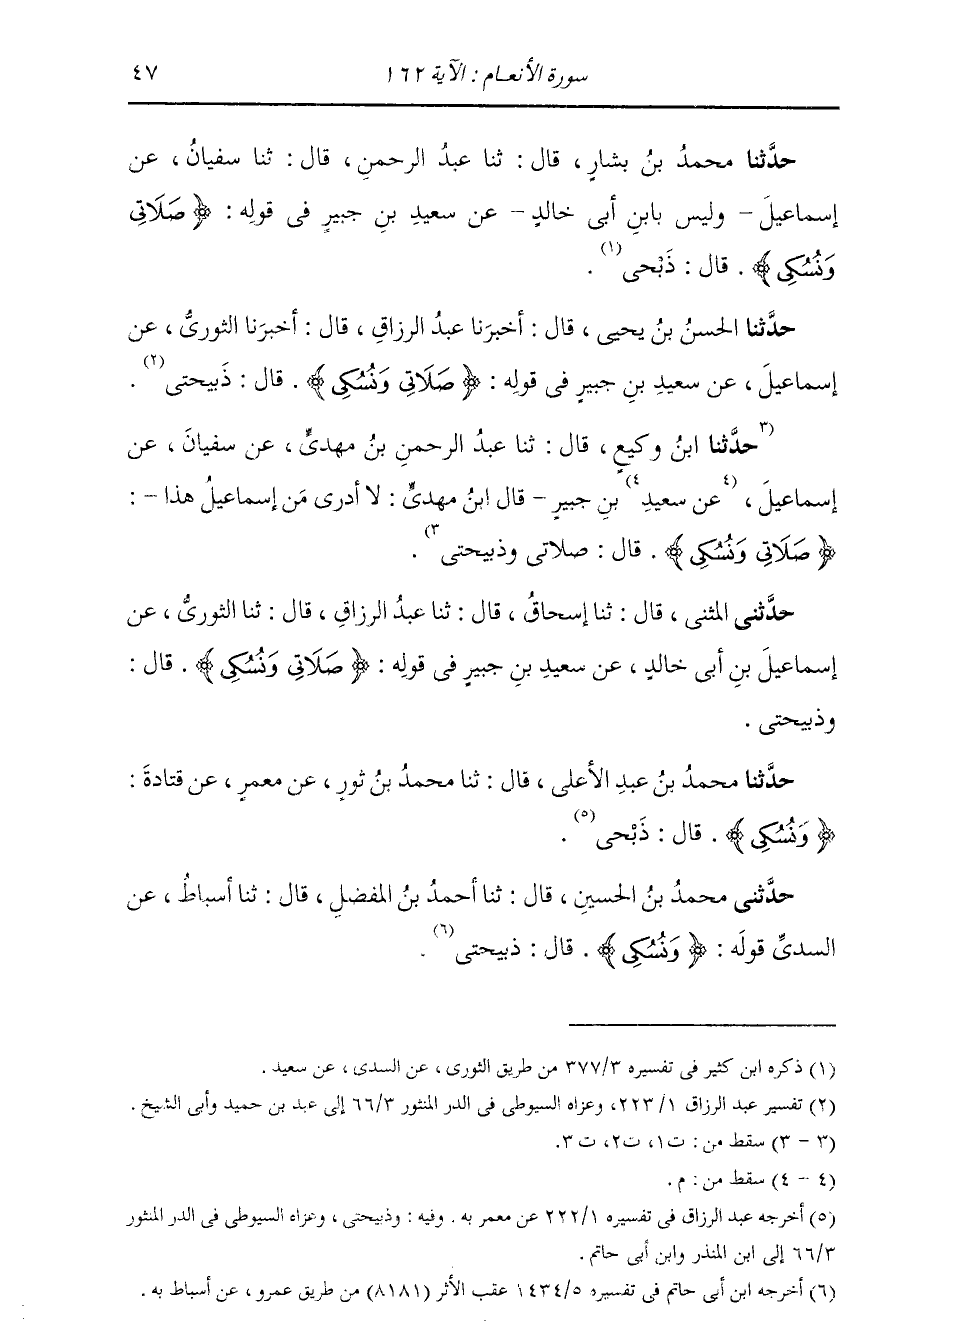 سورة الأنعام : الآية ١٦٢ ٤٧
حدَّثنا محمدُ بنُ بشارٍ ، قال : ثنا عبدُ الرحمنِ ، قال : ثنا سفيانُ ، عن
إسماعيلَ – وليس بابنِ أبى خالدٍ – عن سعيدِ بنِ جبيرٍ فى قولِه : ﴿ صَلَاتِي
وَنُسُكِي ﴾ . قال : ذَبْحى(١) .
حدَّثنا الحسنُ بنُ يحيى ، قال : أخبرَنا عبدُ الرزاقِ ، قال : أخبرَنا الثورىُّ ، عن
إسماعيلَ ، عن سعيدِ بنِ جبيرٍ فى قولِه : ﴿ صَلَاتِي وَنُسُكِي ﴾ . قال : ذَبيحتى(٢) .
(٣حدَّثنا ابنُ وكيعٍ ، قال : ثنا عبدُ الرحمنِ بنُ مهدىٍّ ، عن سفيانَ ، عن
إسماعيلَ ، (٤عن سعيدِ٤) بنِ جبيرٍ – قال ابنُ مهدىٍّ : لا أدرى مَن إسماعيلُ هذا – :
﴿ صَلَاتِي وَنُسُكِي ﴾ . قال : صلاتى وذبيحتى٣) .
حدَّثنى المثنى ، قال : ثنا إسحاقُ ، قال : ثنا عبدُ الرزاقِ ، قال : ثنا الثورىُّ ، عن
إسماعيلَ بنِ أبى خالدٍ ، عن سعيدِ بنِ جبيرٍ فى قولِه : ﴿ صَلَاتِي وَنُسُكِي ﴾ . قال :
وذبيحتى .
حدَّثنا محمدُ بنُ عبدِ الأعلى ، قال : ثنا محمدُ بنُ ثورٍ ، عن معمرٍ ، عن قتادةَ :
﴿ وَنُسُكِي ﴾ . قال : ذَبْحى(٥) .
حدَّثنى محمدُ بنُ الحسينِ ، قال : ثنا أحمدُ بنُ المفضلِ ، قال : ثنا أسباطُ ، عن
السدىِّ قولَه : ﴿ وَنُسُكِي ﴾ . قال : ذبيحتى(٦) .
(١) ذكره ابن كثير فى تفسيره ٣٧٧/٣ من طريق الثورى ، عن السدى ، عن سعيد .
(٢) تفسير عبد الرزاق ٢٢٣/١، وعزاه السيوطى فى الدر المنثور ٦٦/٣ إلى عبد بن حميد وأبى الشيخ .
(٣ – ٣) سقط من : ت١، ت٢، ت٣.
(٤ – ٤) سقط من : م .
(٥) أخرجه عبد الرزاق فى تفسيره ٢٢٢/١ عن معمر به . وفيه : وذبيحتى ، وعزاه السيوطى فى الدر المنثور
٦٦/٣ إلى ابن المنذر وابن أبى حاتم .
(٦) أخرجه ابن أبى حاتم فى تفسيره ١٤٣٤/٥ عقب الأثر (٨١٨١) من طريق عمرو ، عن أسباط به .